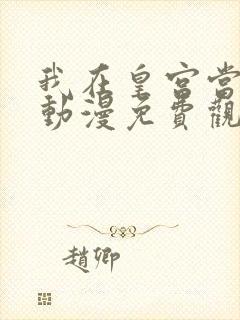 我在皇宫当
動漫免費觀
趙卿